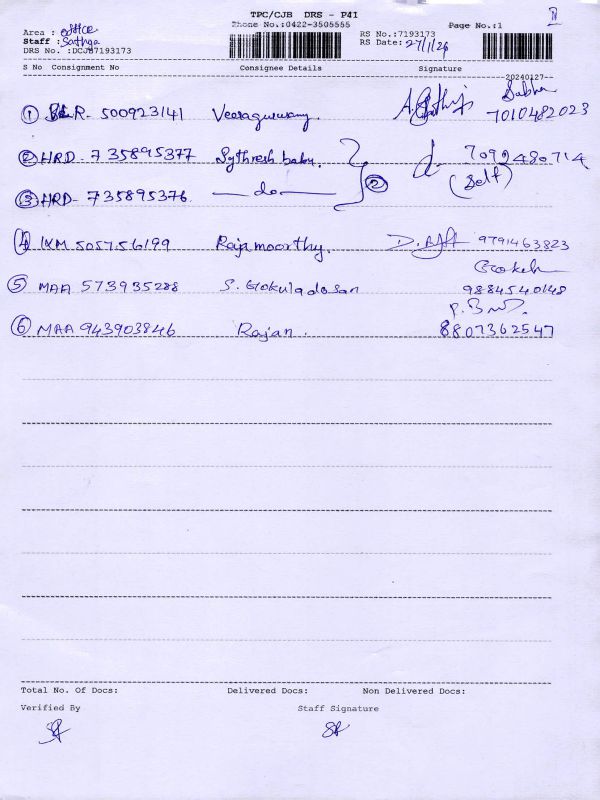 TPC/CJB DRS - P4I
II
Phone No.:0422-3505555
Page No.:1
Area : office
RS No.:7193173
Staff : Sathya
RS Date: 27/1/26
DRS No. :DCJ87193173
S No Consignment No Consignee Details Signature
20240127
Subha
① BLR- 500923141 Veeraguruvamy. 7010482023
② HRD- 735895377 Sythresh babu. 7092480714
② (Self)
③ HRD- 735895376 — do —
4 IXM 505756199 Rajamoorthy. 9791463823
Gokul
⑤ MAA 573935288 S. Gokuladosan 9884540148
⑥ MAA 943903846 Rajan. 8807362547
Total No. Of Docs: Delivered Docs: Non Delivered Docs:
Verified By Staff Signature